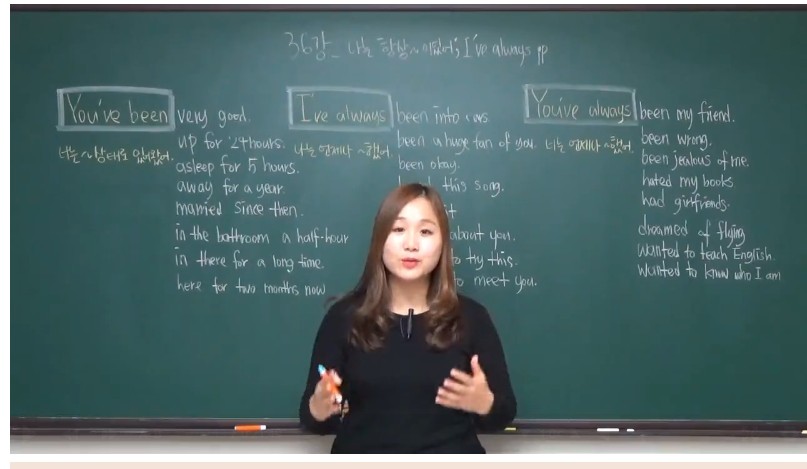 36강_ 나는 항상 ~ 이었어; I've always pp
You've been
너는 ~상태로 있어왔어.
very good.
up for 24 hours.
asleep for 5 hours.
away for a year.
married since then.
in the bathroom a half-hour
in there for a long time.
here for two months now
I've always
나는 언제나 ~했어.
been into
been a huge fan of you.
been okay.
this song.
about you.
to try this.
to meet you.
You've always
너는 언제나 ~했어.
been my friend.
been wrong.
been jealous of me.
hated my books
had girlfriends.
dreamed of flying
wanted to teach English.
wanted to know who I am